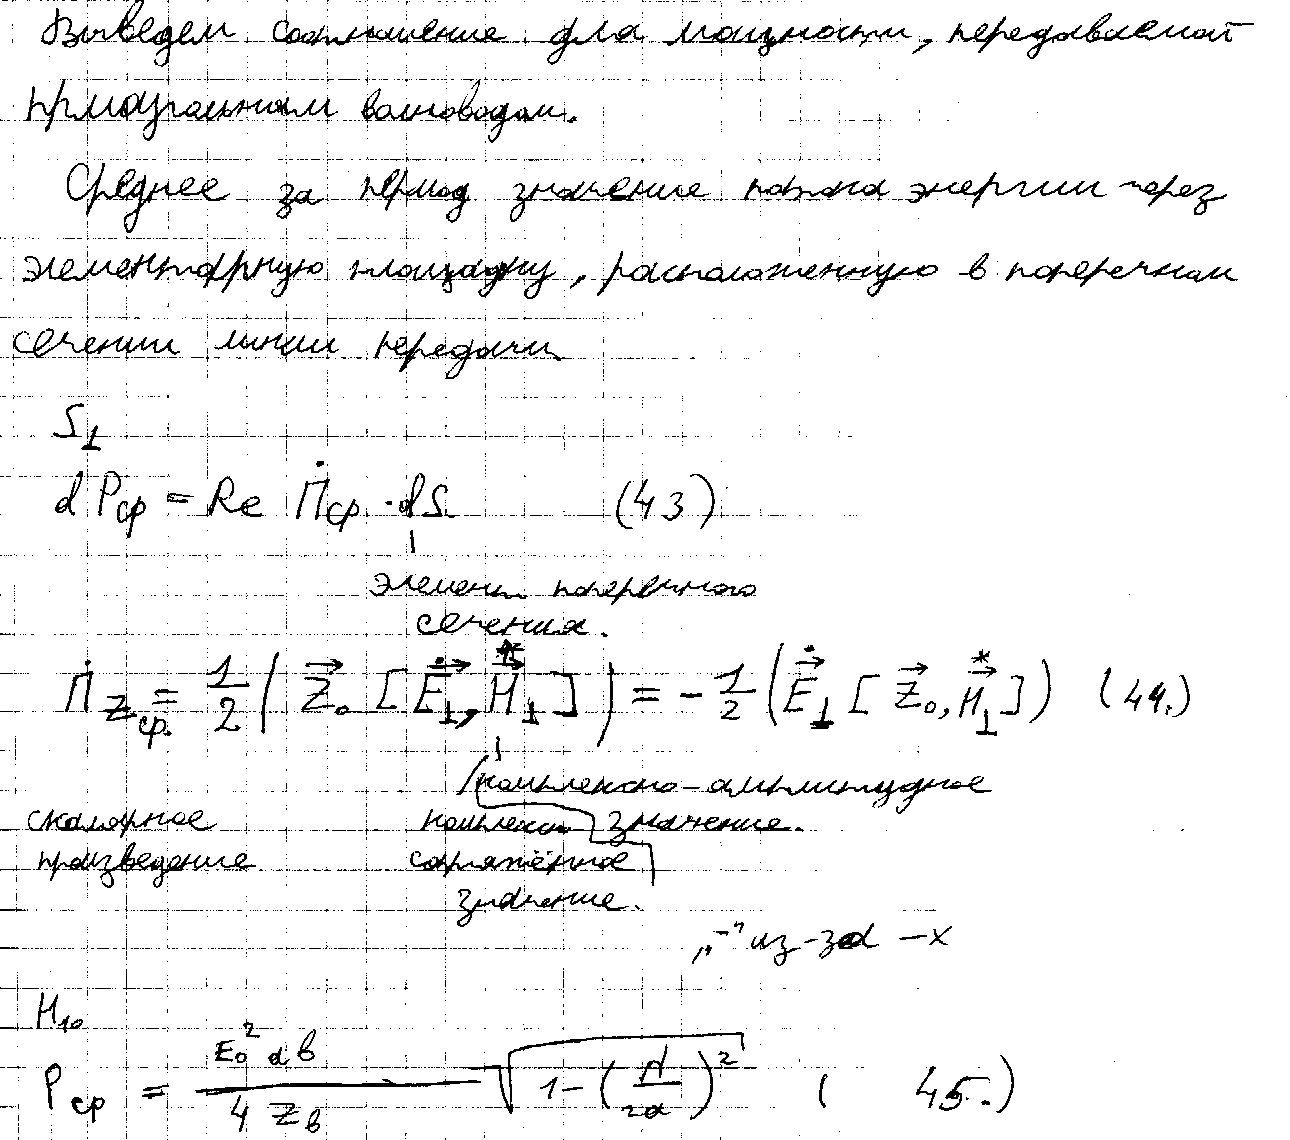 Выведем соотношение для мощности, передаваемой
прямоугольным волноводом.
Среднее за период значение потока энергии через
элементарную площадку, расположенную в поперечном
сечении линии передачи.
S⊥
dPср = Re Π̇ср · dS (43)
элемент поперечного
сечения.
Π̇zср. = 1/2 (Z⃗₀ [Ė⃗⊥, H⃗*⊥]) = - 1/2 (Ė⃗⊥ [Z⃗₀, H⃗*⊥]) (44.)
комплексно-амплитудное
скалярное комплексн. значение.
произведение сопряжённое
значение.
„-" из-за -x
H₁₀
Pср = E₀² a b / 4 Zв √(1 - (λ/2a)²) (45.)